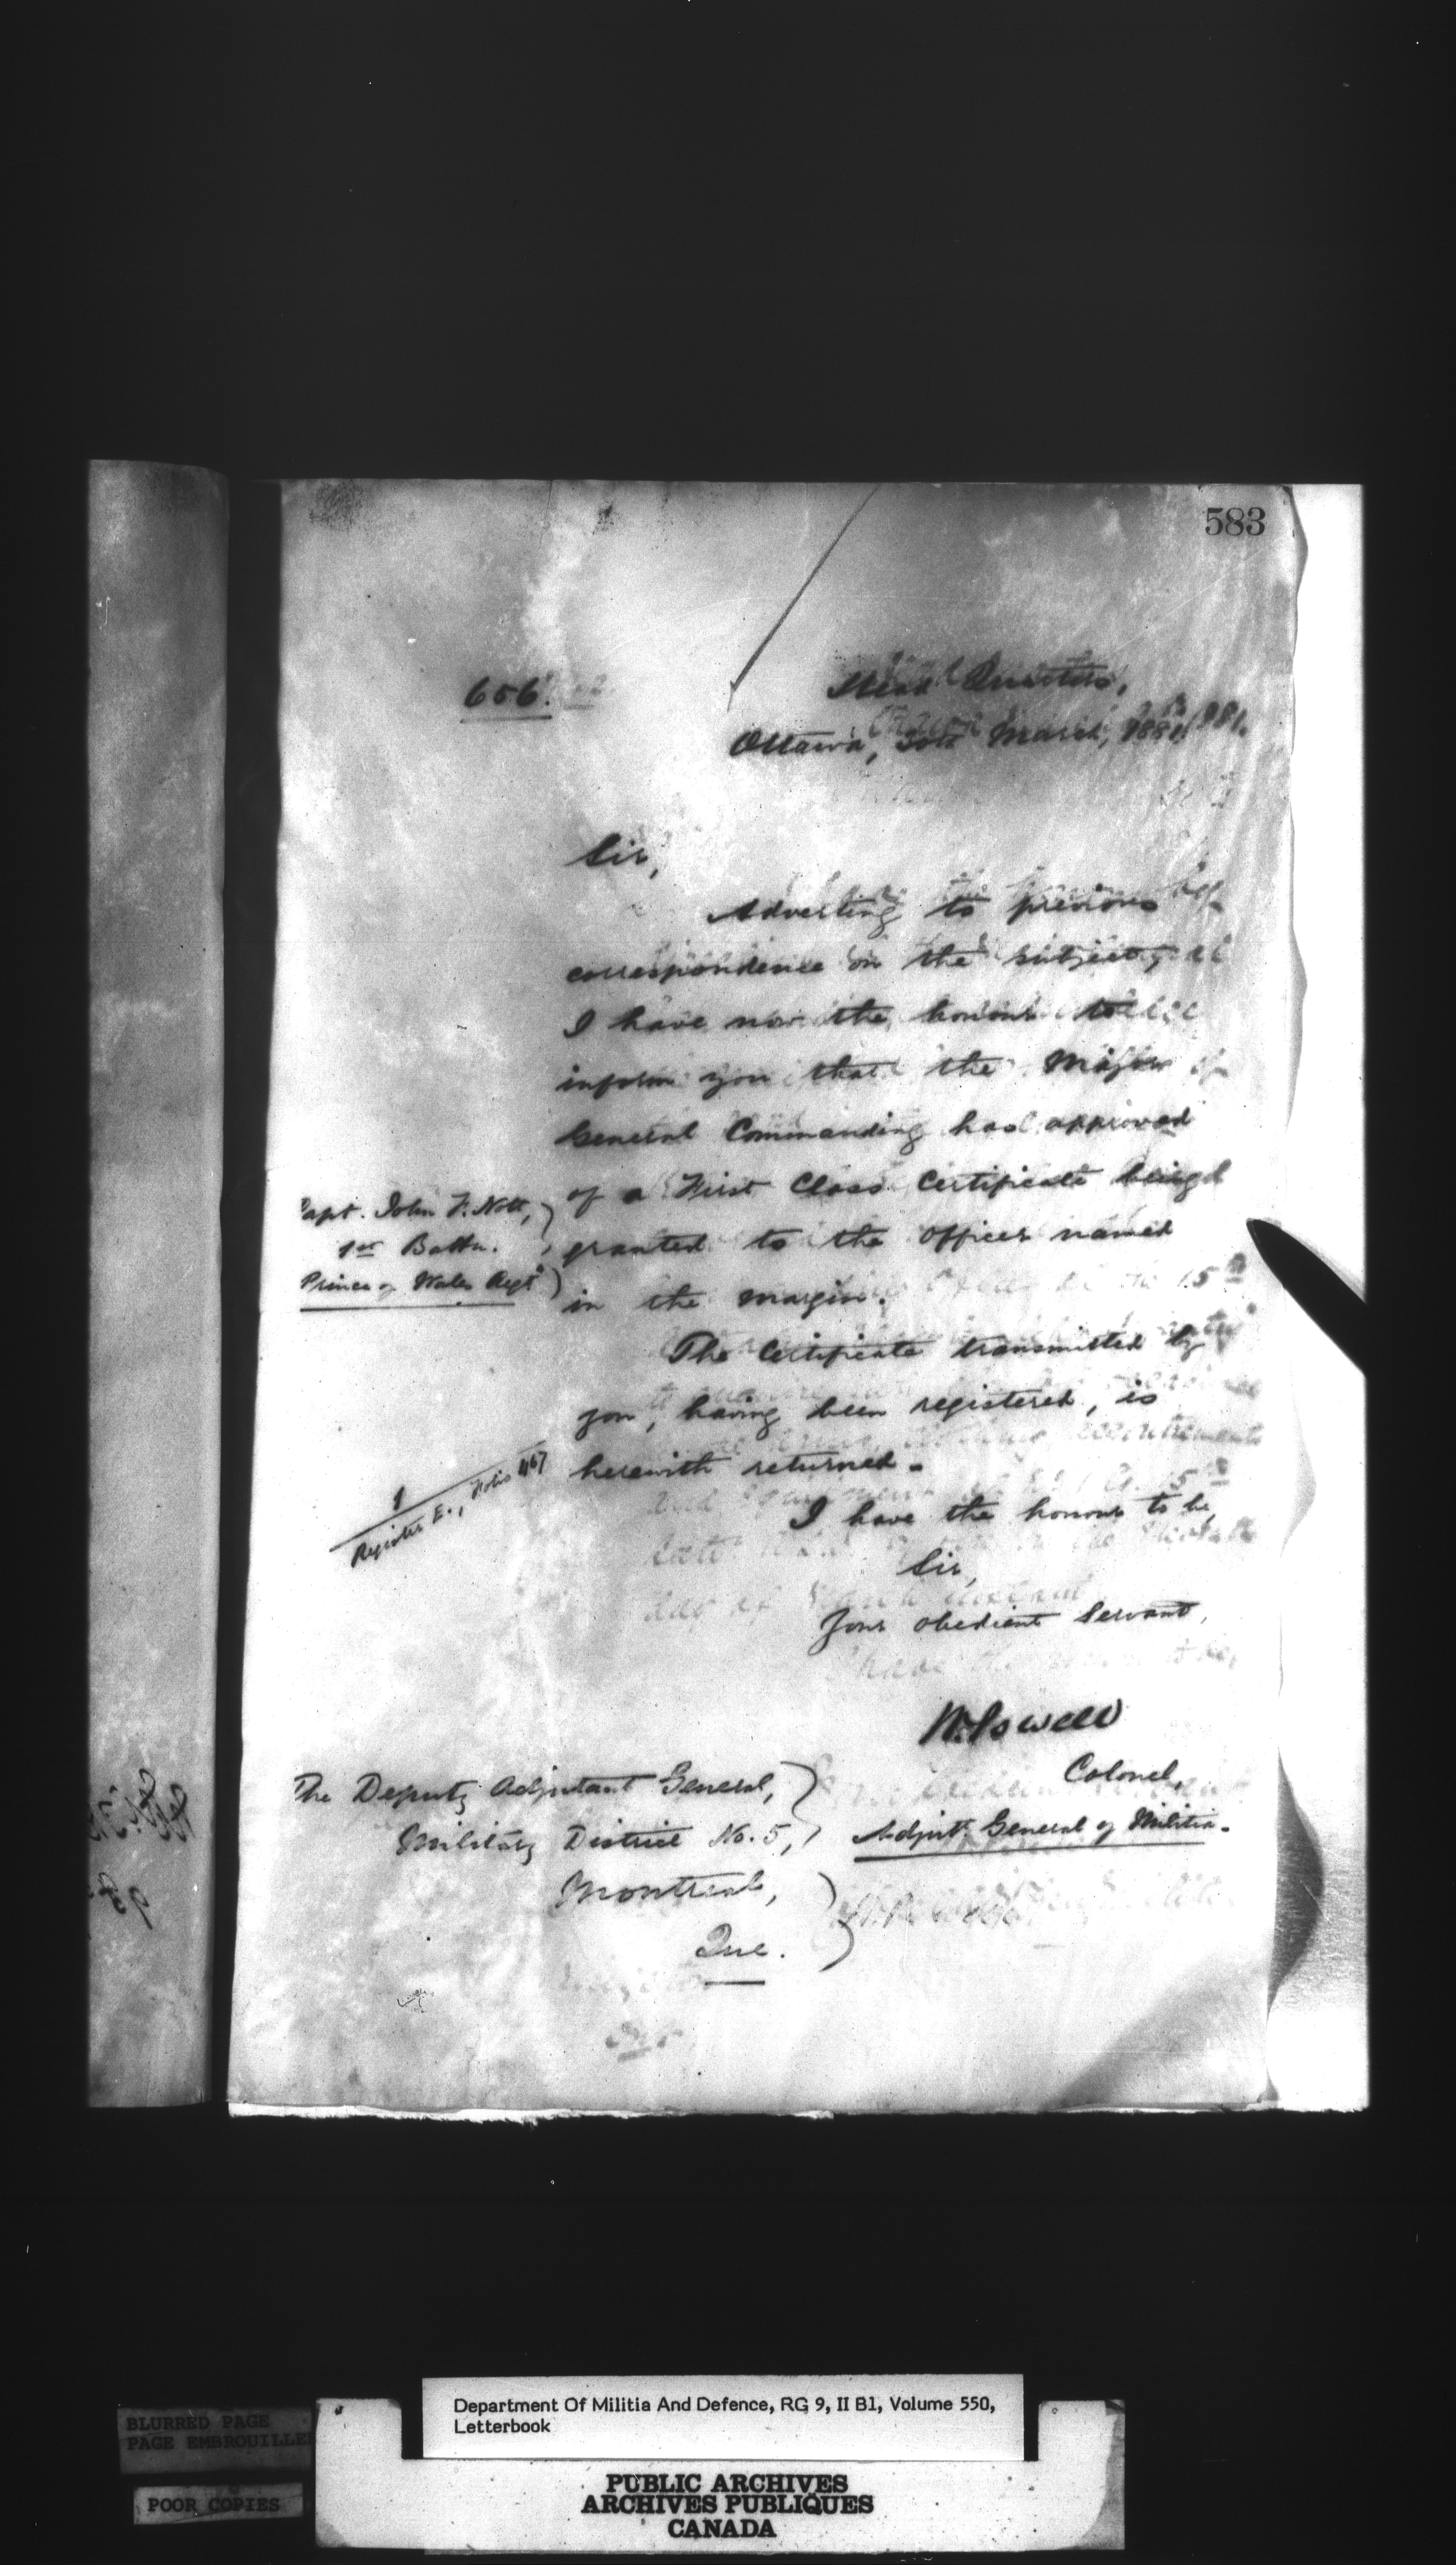 583
656.
Head Quarters,
Ottawa, 30th March, 1881.
Sir,
Adverting to previous
correspondence on the subject,
I have now the honour to
inform you that the Major
General Commanding has approved
of a First Class Certificate being
granted to the Officer named
in the margin.
Capt. John F. Nott,
1st Battn.
Prince of Wales Regt
The Certificate transmitted by
you, having been registered, is
herewith returned.
1
Register E., Folio 467
I have the honour to be,
Sir,
Your obedient Servant,
W. Powell
Colonel,
Adjut. General of Militia.
The Deputy Adjutant General,
Military District No. 5,
Montreal,
Que.
BLURRED PAGE
PAGE EMBROUILLEE
POOR COPIES
Department Of Militia And Defence, RG 9, II B1, Volume 550,
Letterbook
PUBLIC ARCHIVES
ARCHIVES PUBLIQUES
CANADA